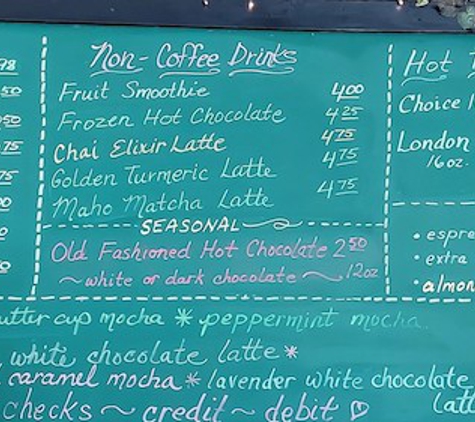 Non-Coffee Drinks
Fruit Smoothie 4.00
Frozen Hot Chocolate 4.25
Chai Elixir Latte 4.75
Golden Turmeric Latte 4.75
Maho Matcha Latte 4.75
SEASONAL
Old Fashioned Hot Chocolate 2.50
~white or dark chocolate ~ 12oz
98
50
50
75
75
Hot
Choice
London
16oz.
• espre
• extra
• almon
utter cup mocha * peppermint mocha
white chocolate latte *
caramel mocha * lavender white chocolate
latt
checks ~ credit ~ debit ♡